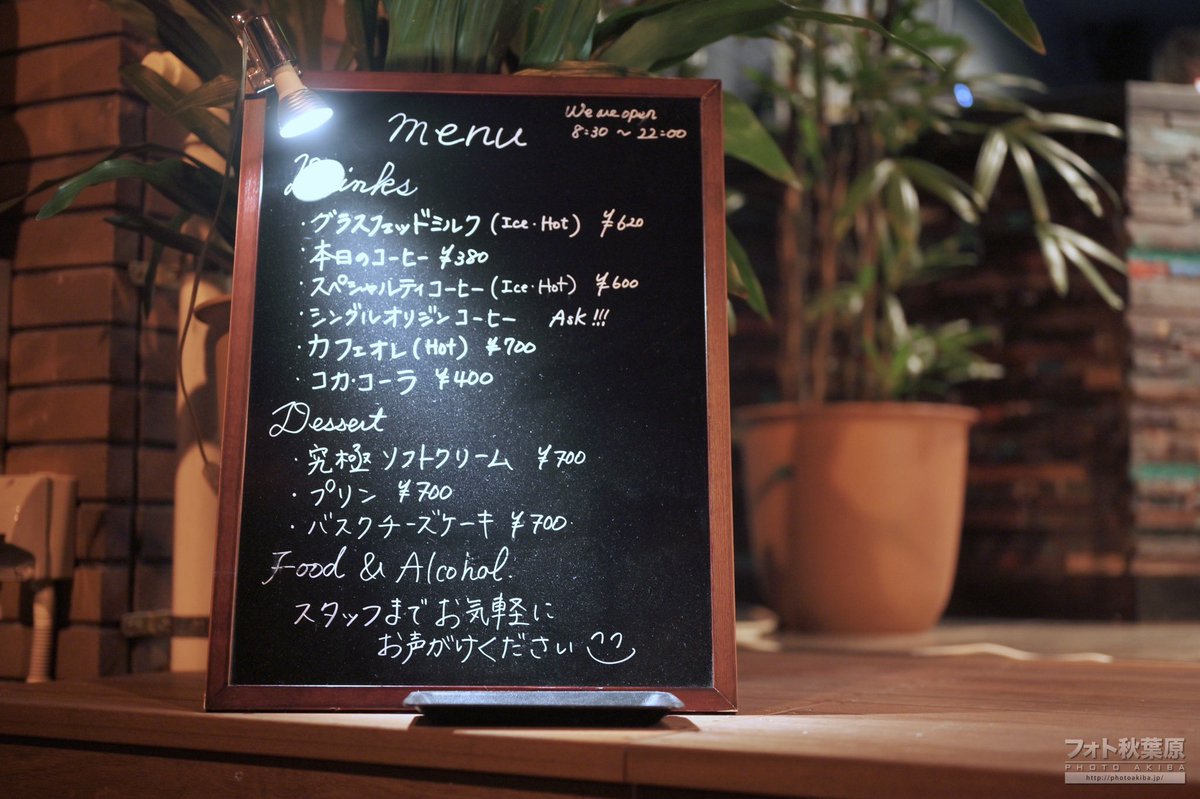 menu
We are open
8:30 ~ 22:00
Drinks
・グラスフェッドミルク (Ice・Hot) ¥620
・本日のコーヒー ¥380
・スペシャルティコーヒー (Ice・Hot) ¥600
・シングルオリジンコーヒー Ask!!!
・カフェオレ (Hot) ¥700
・コカ・コーラ ¥400
Dessert
・究極ソフトクリーム ¥700
・プリン ¥700
・バスクチーズケーキ ¥700
Food & Alcohol.
スタッフまでお気軽に
お声がけください
フォト秋葉原
PHOTO AKIBA
http://photoakiba.jp/